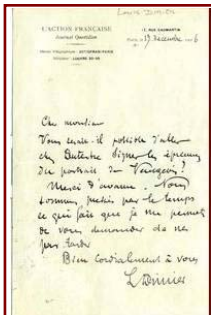 Louis Dimier
L'ACTION FRANÇAISE
Journal Quotidien
17, RUE CAUMARTIN
19 décembre
Cher monsieur
Vous serait-il possible d'aller
chez Dutertre signer les épreuves
du portrait de
Merci d'avance. Nous
sommes pressés par le temps
ce qui fait que je me permets
de vous demander de ne
pas tarder
Bien cordialement à vous
L Dimier